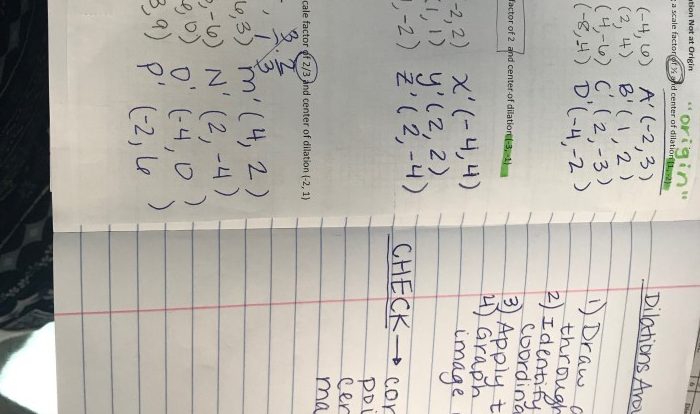 tion Not at Origin
a scale factor of ½ and center of dilation (1, 2)
"origin"
(-4, 6) A' (-2, 3)
(2, 4) B' (1, 2)
(4, -6) C' (2, -3)
(-8, 4) D' (-4, -2)
factor of 2 and center of dilation (-3, -1)
-2, 2) X' (-4, 4)
1, 1) Y' (2, 2)
, -2) Z' (2, -4)
cale factor of 2/3 and center of dilation (-2, 1)
6, 3) M' (4, 2)
, -6) N' (2, -4)
, 0) O' (-4, 0)
3, 9) P' (-2, 6)
Dilations
1) Draw
through
2) Identify
coordina
3) Apply t
4) Graph
image
CHECK → cor
poi
cen
ma